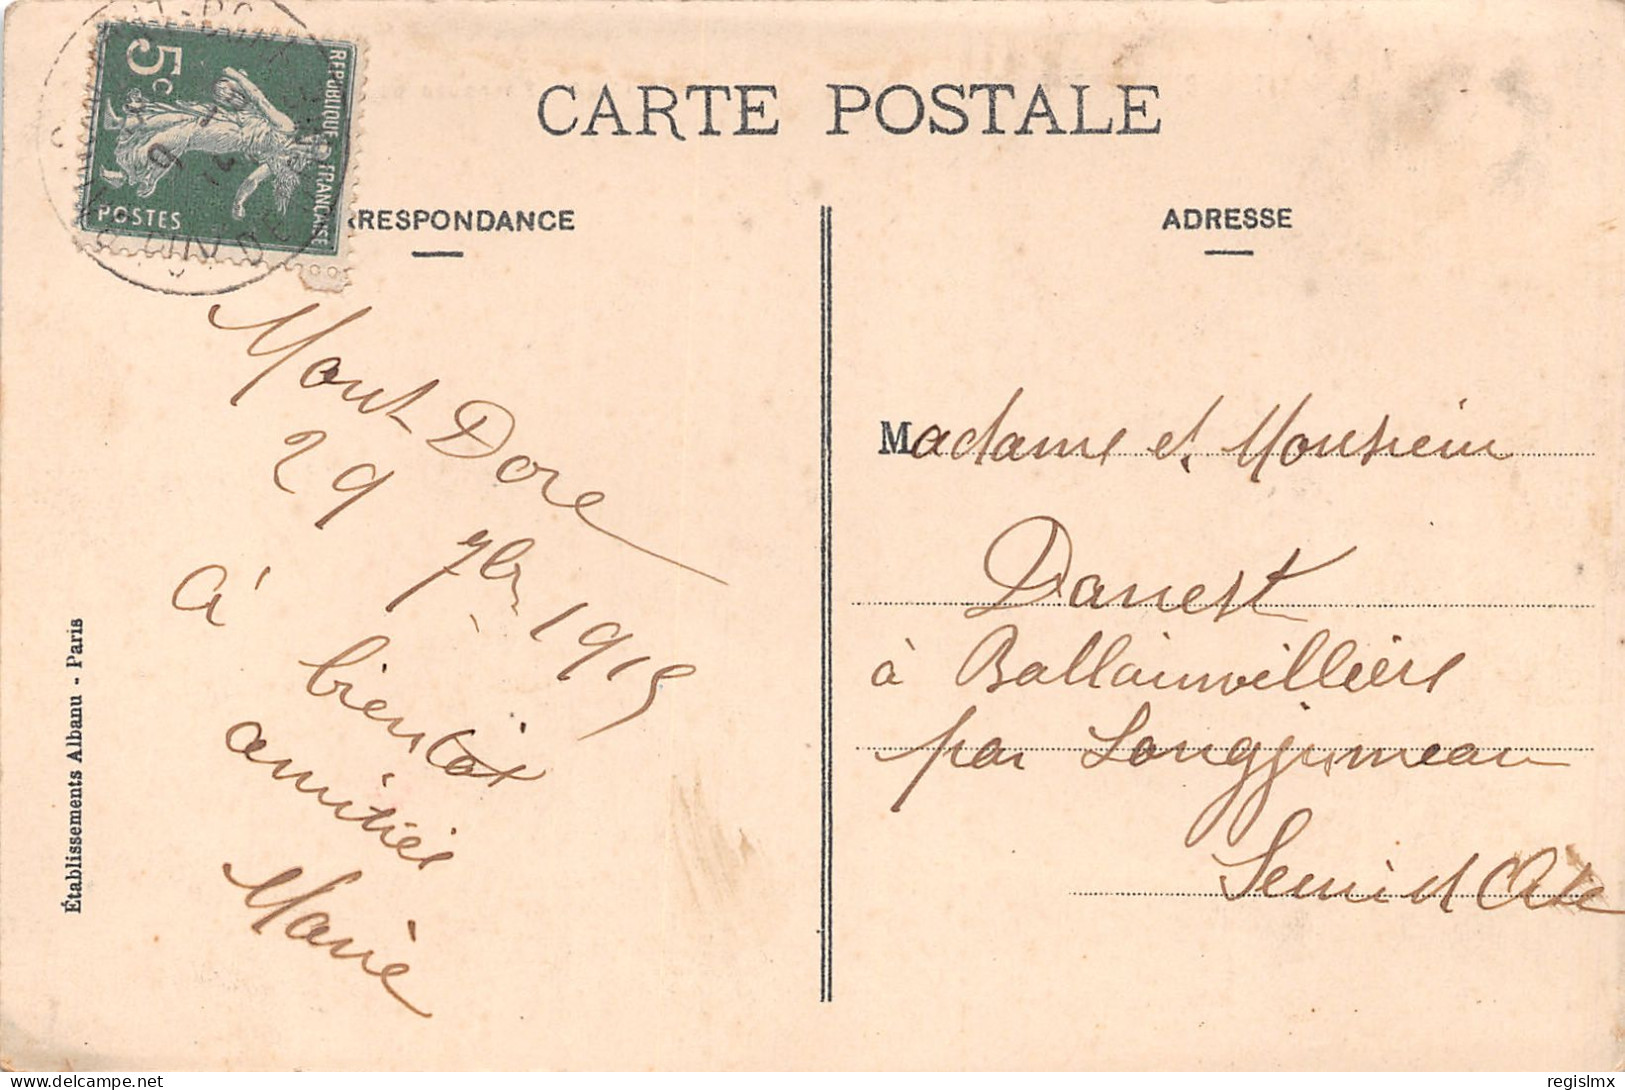 CARTE POSTALE
RRESPONDANCE
ADRESSE
REPUBLIQUE FRANÇAISE
5c
POSTES
Mont Dore
29 7bre 1915
à bientot
amitiés
Marie
Madame et Monsieur
Danest
à Ballainvilliers
par Longjumeau
Seine et Oise
Établissements Albanu - Paris
regislmx